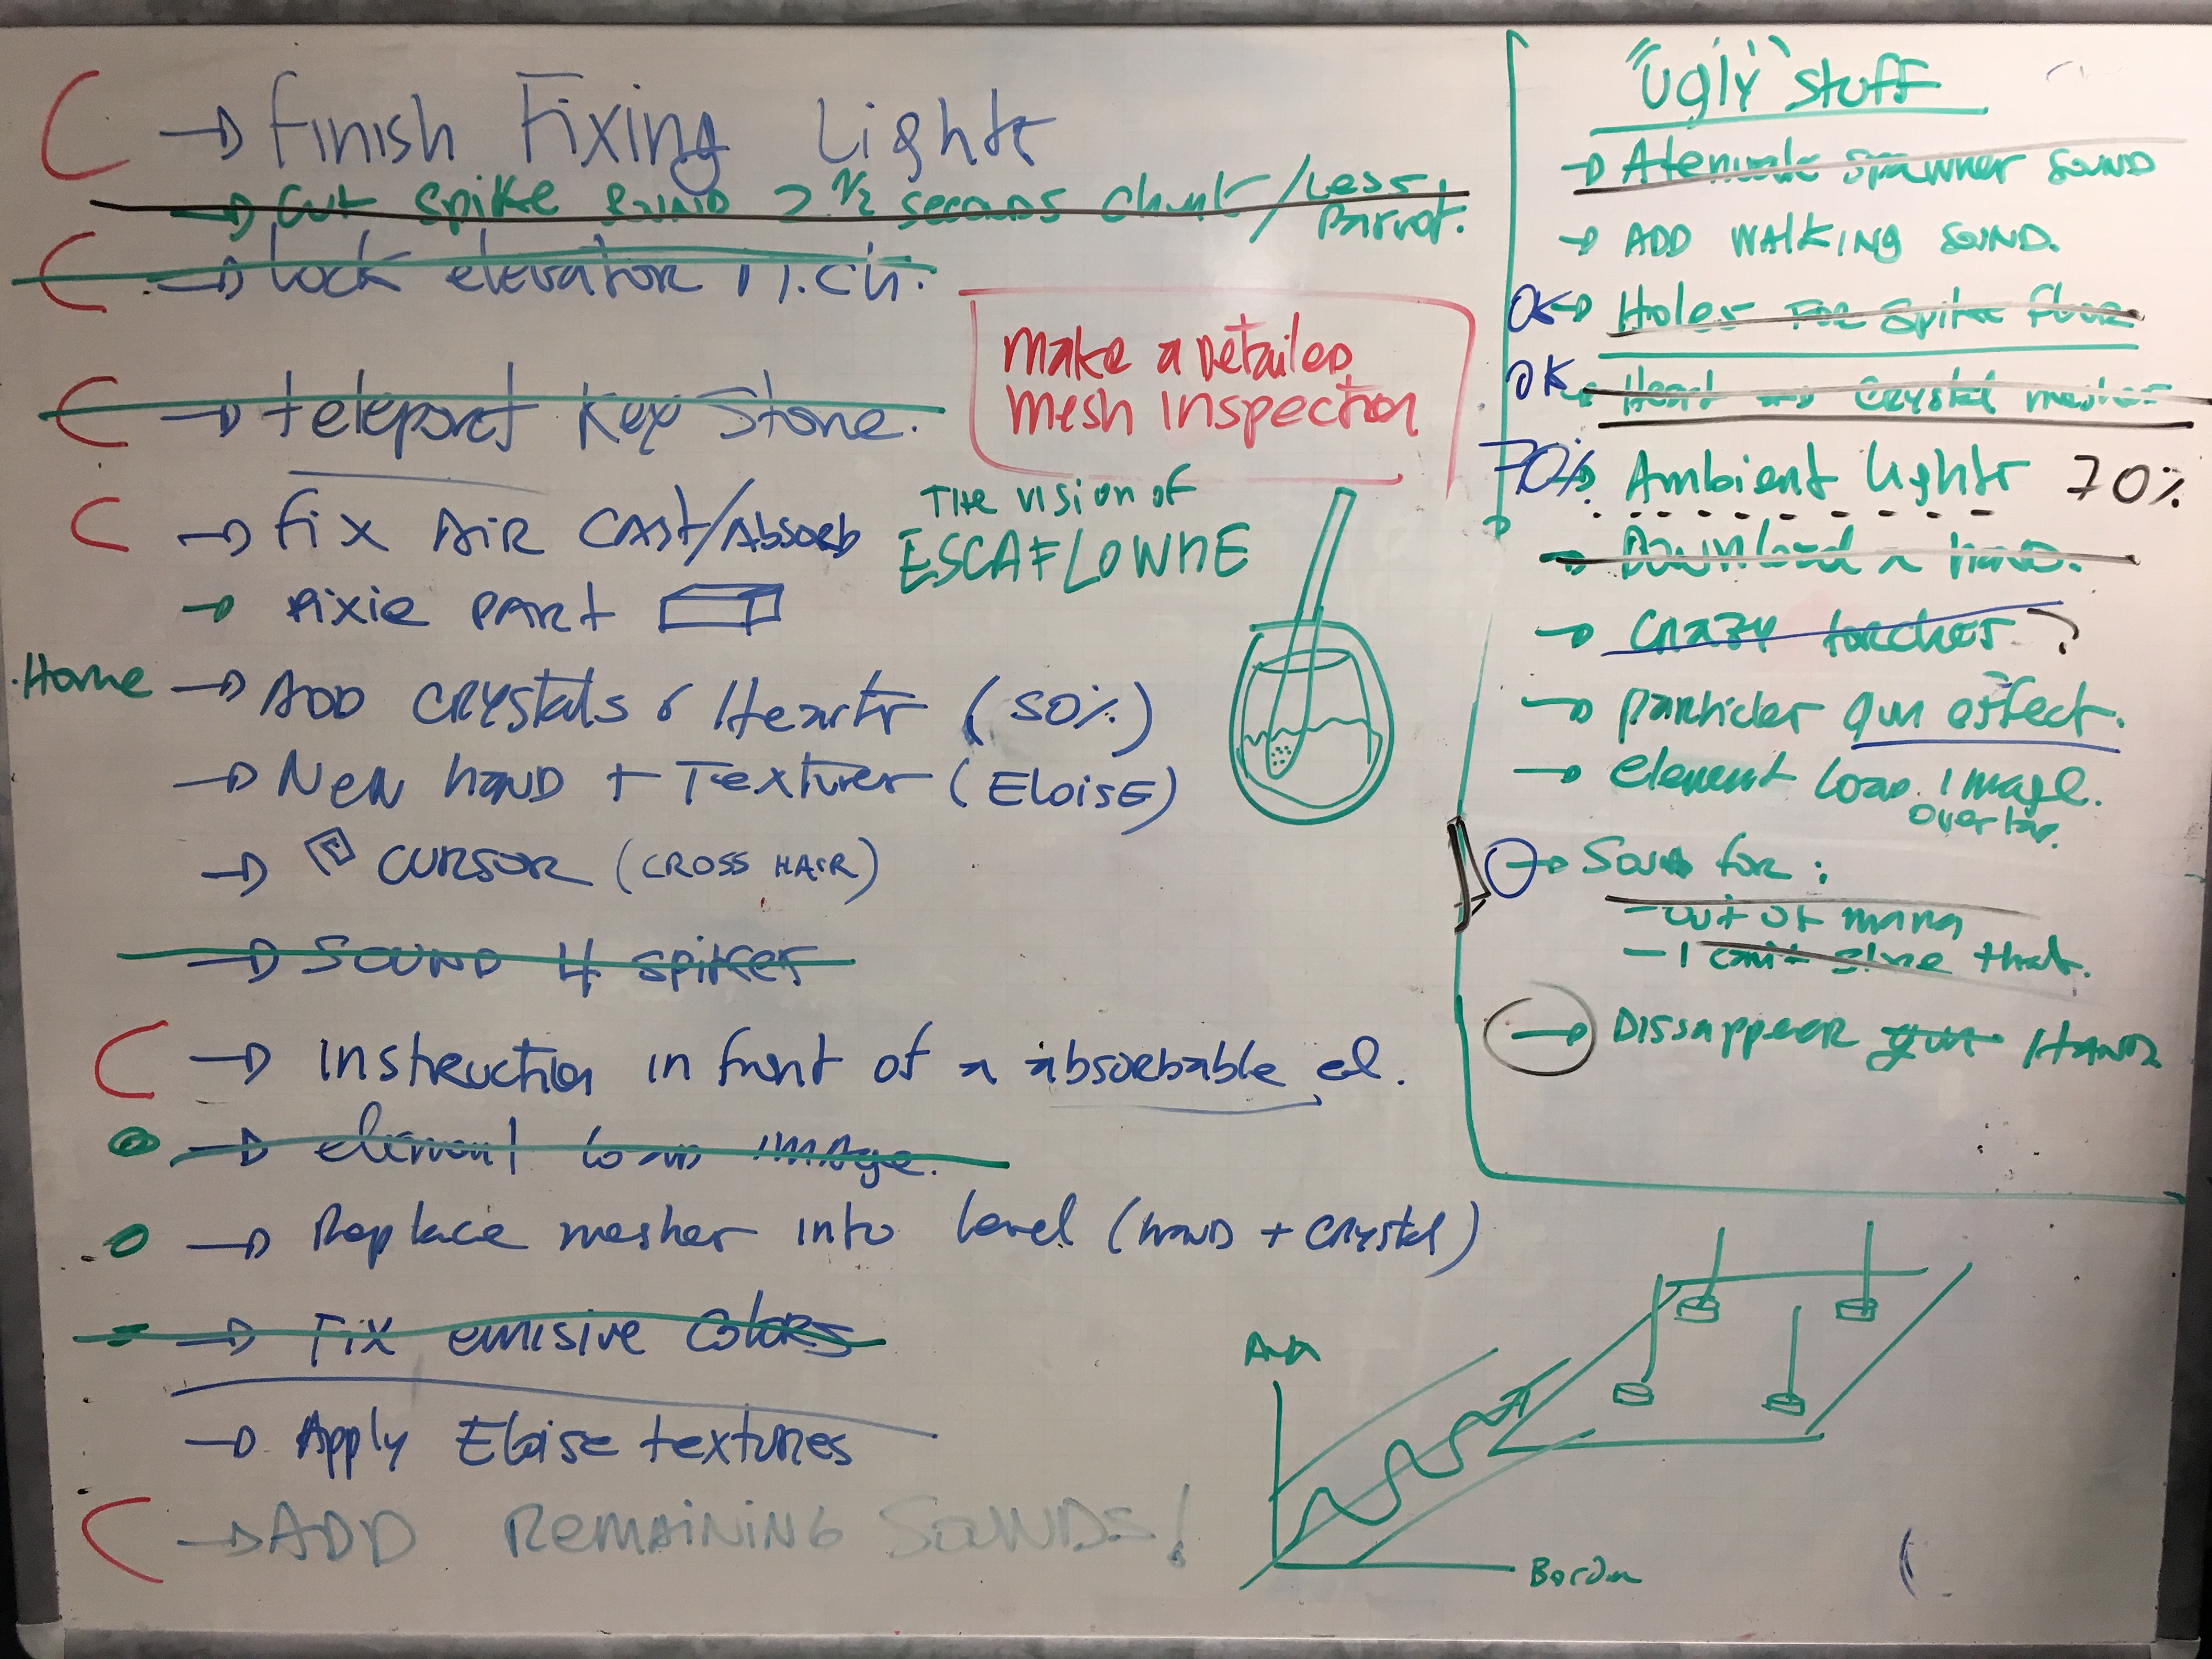 C → Finish Fixing Lights
→ Cut spike sound 2 1/2 seconds chunk / Less
Parrot.
C → Lock elevator
C → teleport Key Stone.
make a detailed
mesh inspection
C → fix AIR CAST/Absorb
The vision of
ESCAFLOWNE
→ Pixie PART
Home → ADD CRYSTALS & Hearts (50%)
→ New hand + Textures (ELOISE)
→ CURSOR (CROSS HAIR)
→ SOUND 4 spikes
C → instruction in front of a absorbable el.
→ element load image.
→ Replace meshes into level (hand + crystal)
→ Fix emisive colors
→ Apply Eloise textures
C → ADD REMAINING SOUNDS!
"Ugly" stuff
→ Atenuate spawner sound
→ ADD WALKING SOUND.
OK → Holes for spike floor
OK → Heart and Crystal meshes
70% → Ambient lights 70%
→ Download a hand.
→ Crazy torches ?
→ particles gun effect.
→ element load image.
overlap.
→ Sound for:
- out of mana
- I can't that.
→ Dissappear gun HAND
Border